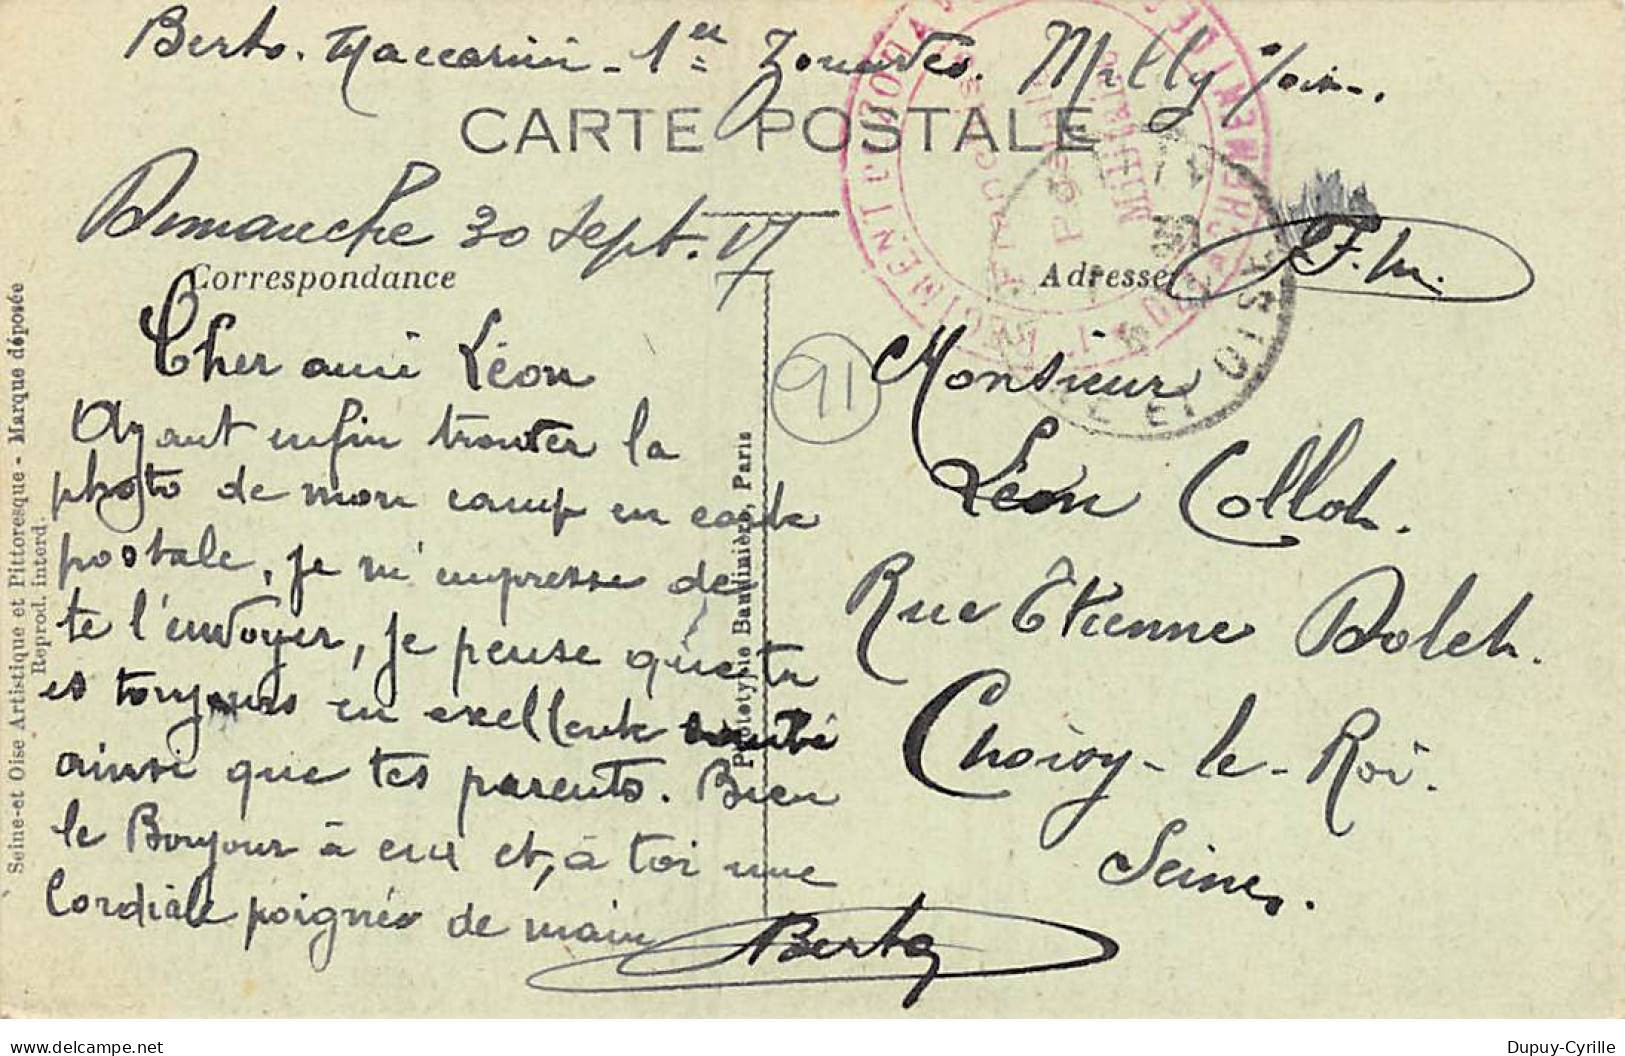 Berto. Maccarini - 1er Zouaves. Milly S/Oise.
CARTE POSTALE
Dimanche 30 Sept. 17
Correspondance
Adresse
F.M.
Cher ami Léon
Ayant enfin trouver la
photo de mon camp en carte
postale, je m'empresse de
te l'envoyer, je pense que tu
es toujours en exellente santé
ainsi que tes parents. Bien
le Bonjour à eux et, à toi une
Cordiale poignée de main
Berto
91
Monsieur
Léon Colloh.
Rue Étienne Doleh.
Choisy-le-Roi.
Seine.
Seine-et Oise Artistique et Pittoresque - Marque déposée
Reprod. interd.
Phototypie Baudinière, Paris
Franchise
Postale
Militaire
© www.delcampe.net
Dupuy-Cyrille